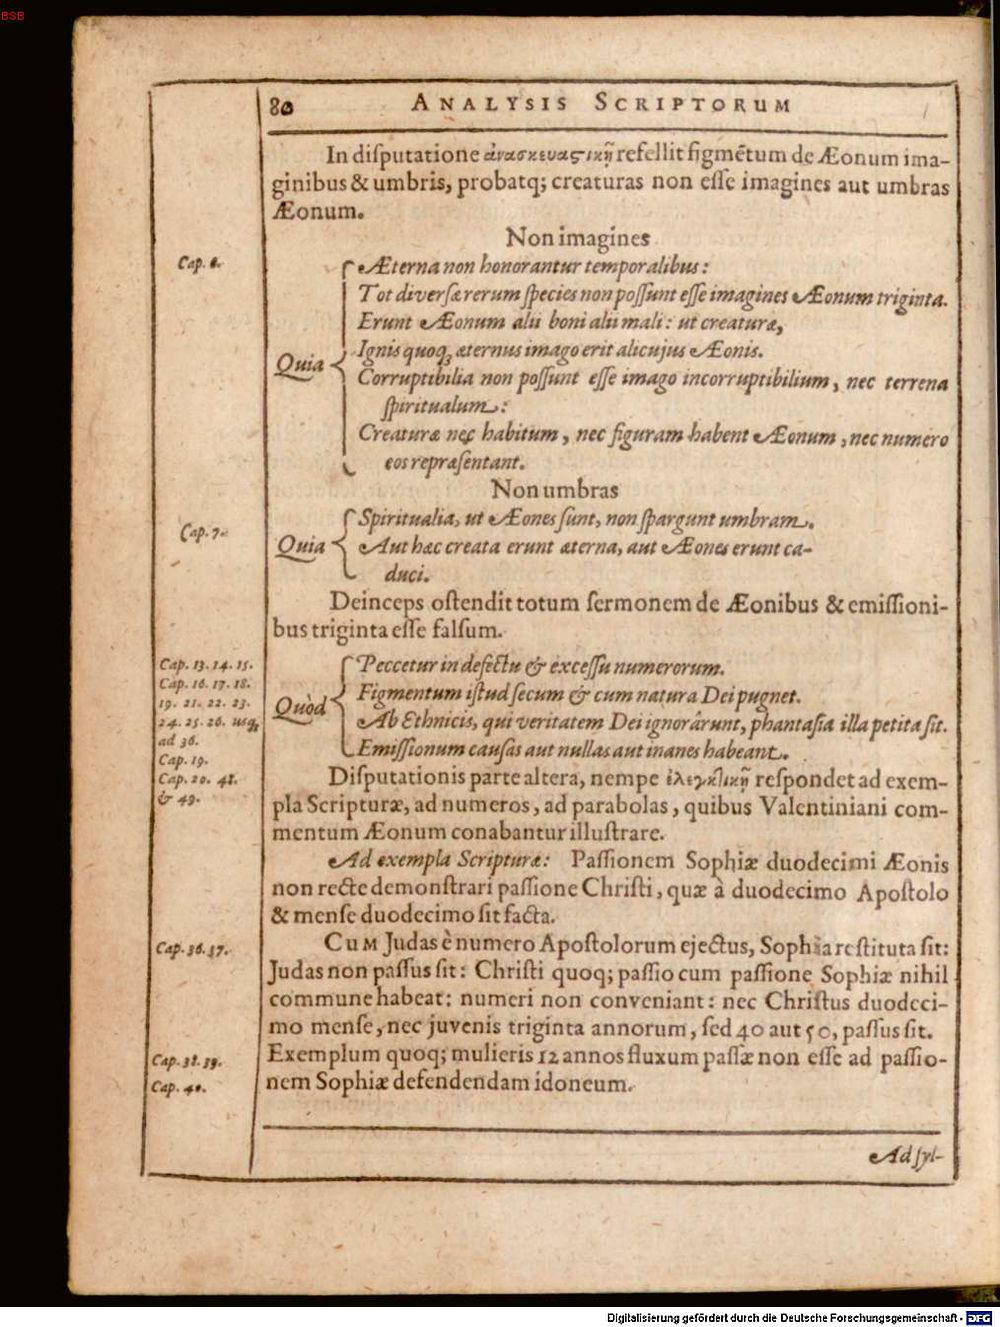 BSB
80 ANALYSIS SCRIPTORUM
In disputatione ἀνασκευαστικῇ refellit figmẽtum de Æonum ima-
ginibus & umbris, probatq; creaturas non esse imagines aut umbras
Æonum.
Non imagines
Cap. 6.
Æterna non honorantur temporalibus:
Tot diversæ rerum species non possunt esse imagines Æonum triginta.
Erunt Æonum alii boni alii mali: ut creaturæ,
Ignis quoq; æternus imago erit alicujus Æonis.
Quia
Corruptibilia non possunt esse imago incorruptibilium, nec terrena
spiritualum:
Creaturæ nec habitum, nec figuram habent Æonum, nec numero
eos repræsentant.
Non umbras
Cap. 7.
Spiritualia, ut Æones sunt, non spargunt umbram.
Quia
Aut hæc creata erunt æterna, aut Æones erunt ca-
duci.
Deinceps ostendit totum sermonem de Æonibus & emissioni-
bus triginta esse falsum.
Cap. 13. 14. 15.
Cap. 16. 17. 18.
19. 21. 22. 23.
24. 25. 26. usq;
ad 36.
Cap. 19.
Cap. 20. 48.
& 49.
Quòd
Peccetur in defectu & excessu numerorum.
Figmentum istud secum & cum natura Dei pugnet.
Ab Ethnicis, qui veritatem Dei ignorârunt, phantasia illa petita sit.
Emissionum causas aut nullas aut inanes habeant.
Disputationis parte altera, nempe ἐλεγκτικῇ respondet ad exem-
pla Scripturæ, ad numeros, ad parabolas, quibus Valentiniani com-
mentum Æonum conabantur illustrare.
Ad exempla Scripturæ: Passionem Sophiæ duodecimi Æonis
non recte demonstrari passione Christi, quæ à duodecimo Apostolo
& mense duodecimo sit facta.
Cap. 36. 37.
CUM Judas è numero Apostolorum ejectus, Sophia restituta sit:
Judas non passus sit: Christi quoq; passio cum passione Sophiæ nihil
commune habeat: numeri non conveniant: nec Christus duodeci-
mo mense, nec juvenis triginta annorum, sed 40 aut 50, passus sit.
Cap. 38. 39.
Exemplum quoq; mulieris 12 annos fluxum passæ non esse ad passio-
Cap. 40.
nem Sophiæ defendendam idoneum.
Ad syl-
Digitalisierung gefördert durch die Deutsche Forschungsgemeinschaft - DFG